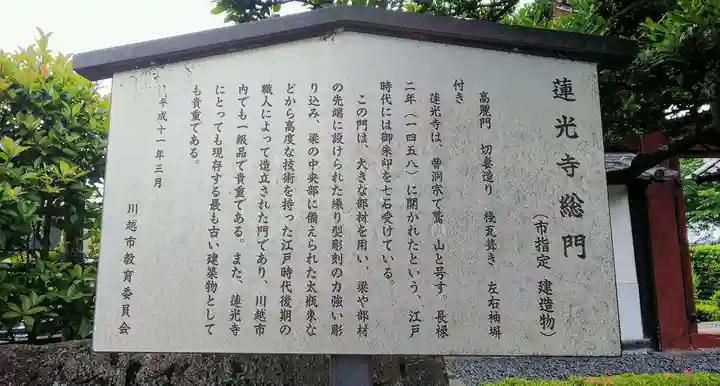 蓮光寺総門
(市指定 建造物)
高麗門 切妻造り 桟瓦葺き 左右袖塀
付き
蓮光寺は、曹洞宗で鷲 山と号す。長禄
二年(一四五八)に開かれたという、江戸
時代には御朱印を七石受けている。
この門は、大きな部材を用い、梁や部材
の先端に設けられた繰り型彫刻の力強い彫
り込み、梁の中央部に備えられた太瓶束な
どから高度な技術を持った江戸時代後期の
職人によって造立された門であり、川越市
内でも一級品で貴重である。また、蓮光寺
にとっても現存する最も古い建築物として
も貴重である。
平成十一年三月
川越市教育委員会